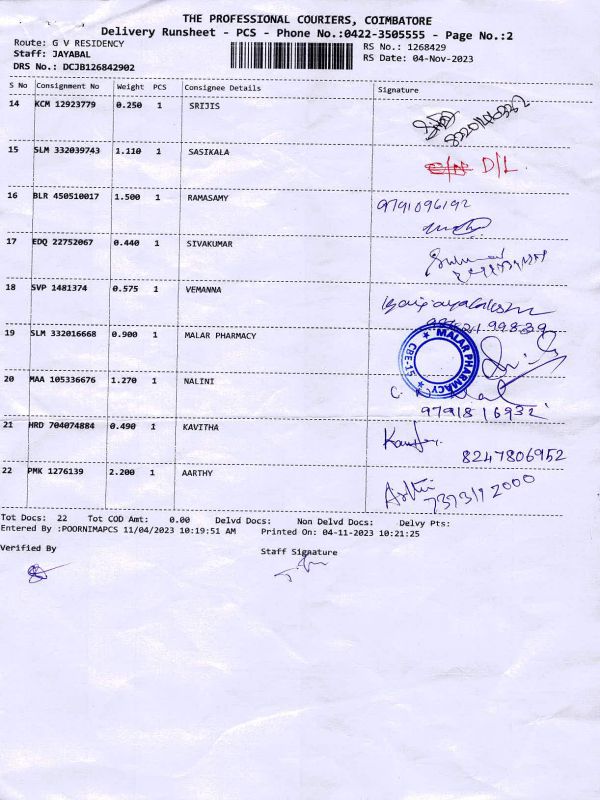 THE PROFESSIONAL COURIERS, COIMBATORE
Delivery Runsheet - PCS - Phone No.:0422-3505555 - Page No.:2
Route: G V RESIDENCY
RS No.: 1268429
Staff: JAYABAL
RS Date: 04-Nov-2023
DRS No.: DCJB126842902
S No Consignment No Weight PCS Consignee Details Signature
14 KCM 12923779 0.250 1 SRIJIS
15 SLM 332039743 1.110 1 SASIKALA
C/N D/L.
16 BLR 450510017 1.500 1 RAMASAMY
9791096192
17 EDQ 22752067 0.440 1 SIVAKUMAR
18 SVP 1481374 0.575 1 VEMANNA
19 SLM 332016668 0.900 1 MALAR PHARMACY
MALAR PHARMACY
CBE-15
20 MAA 105336676 1.270 1 NALINI
9791816932
21 HRD 704074884 0.490 1 KAVITHA
8247806952
22 PMK 1276139 2.200 1 AARTHY
7373172000
Tot Docs: 22 Tot COD Amt: 0.00 Delvd Docs: Non Delvd Docs: Delvy Pts:
Entered By :POORNIMAPCS 11/04/2023 10:19:51 AM Printed On: 04-11-2023 10:21:25
Verified By
Staff Signature